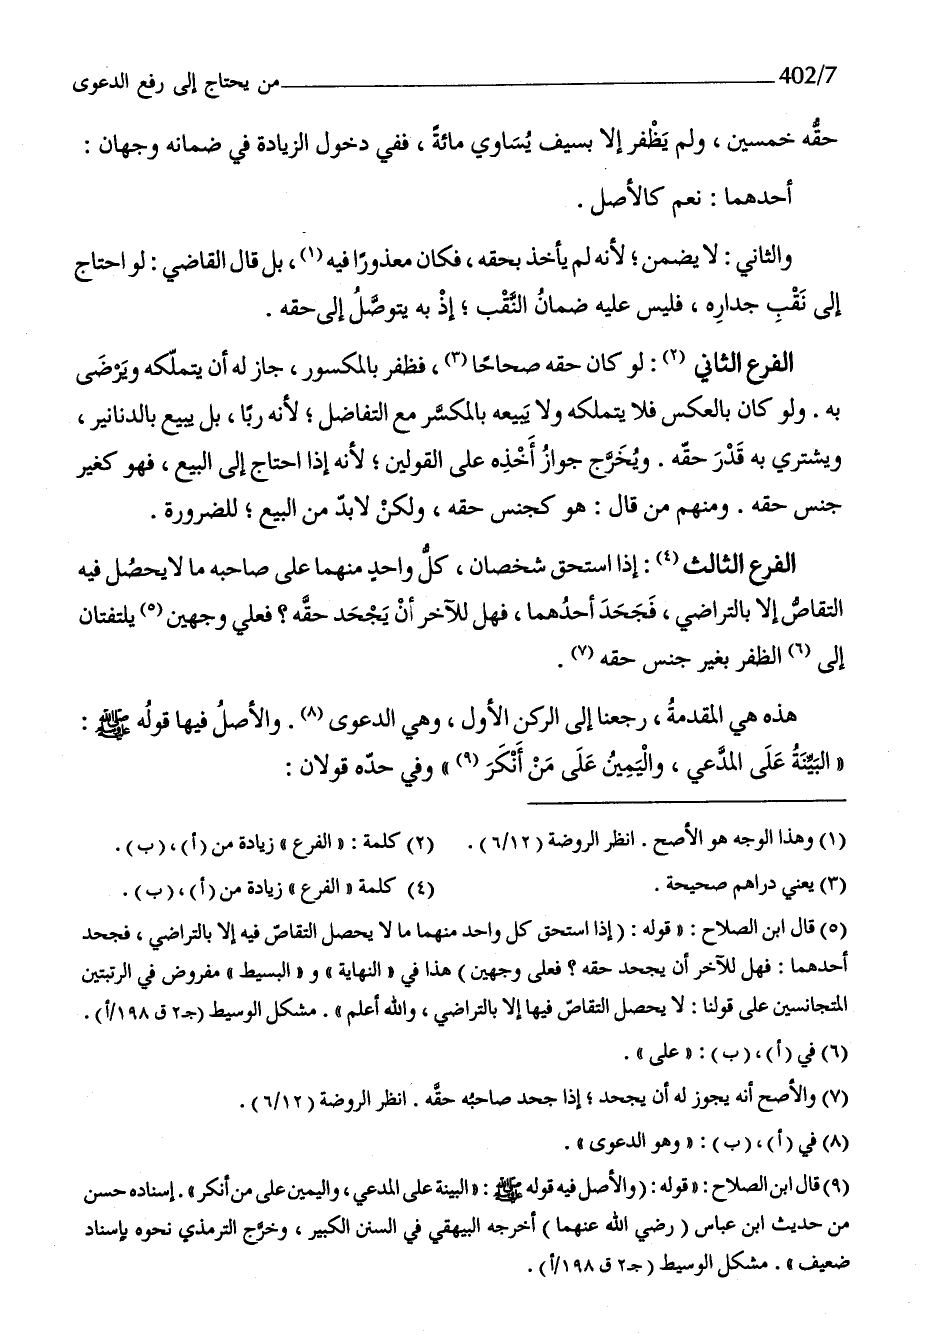 402/7 من يحتاج إلى رفع الدعوى
حقُّه خمسين ، ولم يَظْفر إلا بسيف يُسَاوي مائةً ، ففي دخول الزيادة في ضمانه وجهان :
أحدهما : نعم كالأصل .
والثاني : لا يضمن ؛ لأنه لم يأخذ بحقه ، فكان معذورًا فيه (١) ، بل قال القاضي : لو احتاج
إلى نَقْبِ جدارِه ، فليس عليه ضمانُ النَّقْب ؛ إذْ به يتوصَّلُ إلى حقه .
الفرع الثاني (٢) : لو كان حقه صحاحًا (٣) ، فظفر بالمكسور ، جاز له أن يتملّكه ويَرْضَى
به . ولو كان بالعكس فلا يتملكه ولا يَبِيعه بالمكسَّر مع التفاضل ؛ لأنه ربًا ، بل يبيع بالدنانير ،
ويشتري به قَدْرَ حقّه . ويُخَرَّج جوازُ أَخْذِه على القولين ؛ لأنه إذا احتاج إلى البيع ، فهو كغير
جنس حقه . ومنهم من قال : هو كجنس حقه ، ولكنْ لابدّ من البيع ؛ للضرورة .
الفرع الثالث (٤) : إذا استحق شخصان ، كلُّ واحدٍ منهما على صاحبه ما لايحصُل فيه
التقاصُّ إلا بالتراضي ، فَجَحَدَ أحدُهما ، فهل للآخر أنْ يَجْحَد حقَّه ؟ فعلي وجهين (٥) يلتفتان
إلى (٦) الظفر بغير جنس حقه (٧) .
هذه هي المقدمةُ ، رجعنا إلى الركن الأول ، وهي الدعوى (٨) . والأصلُ فيها قولُه ﷺ :
« البَيِّنَةُ عَلَى المدَّعي ، والْيَمِينُ عَلَى مَنْ أَنْكَرَ (٩) » وفي حدّه قولان :
(١) وهذا الوجه هو الأصح . انظر الروضة (٦/١٢) . (٢) كلمة : « الفرع » زيادة من (أ) ، (ب) .
(٣) يعني دراهم صحيحة . (٤) كلمة « الفرع » زيادة من (أ) ، (ب) .
(٥) قال ابن الصلاح : « قوله : (إذا استحق كل واحد منهما ما لا يحصل التقاصّ فيه إلا بالتراضي ، فجحد
أحدهما : فهل للآخر أن يجحد حقه ؟ فعلى وجهين) هذا في « النهاية » و « البسيط » مفروض في الرتبتين
المتجانسين على قولنا : لا يحصل التقاصّ فيها إلا بالتراضي ، والله أعلم » . مشكل الوسيط (جـ٢ ق ١٩٨/أ) .
(٦) في (أ) ، (ب) : « على » .
(٧) والأصح أنه يجوز له أن يجحد ؛ إذا جحد صاحبُه حقَّه . انظر الروضة (٦/١٢) .
(٨) في (أ) ، (ب) : « وهو الدعوى » .
(٩) قال ابن الصلاح : « قوله : (والأصل فيه قوله ﷺ : « البينة على المدعي ، واليمين على من أنكر » . إسناده حسن
من حديث ابن عباس ( رضي الله عنهما ) أخرجه البيهقي في السنن الكبير ، وخرَّج الترمذي نحوه بإسناد
ضعيف » . مشكل الوسيط (جـ٢ ق ١٩٨/أ) .